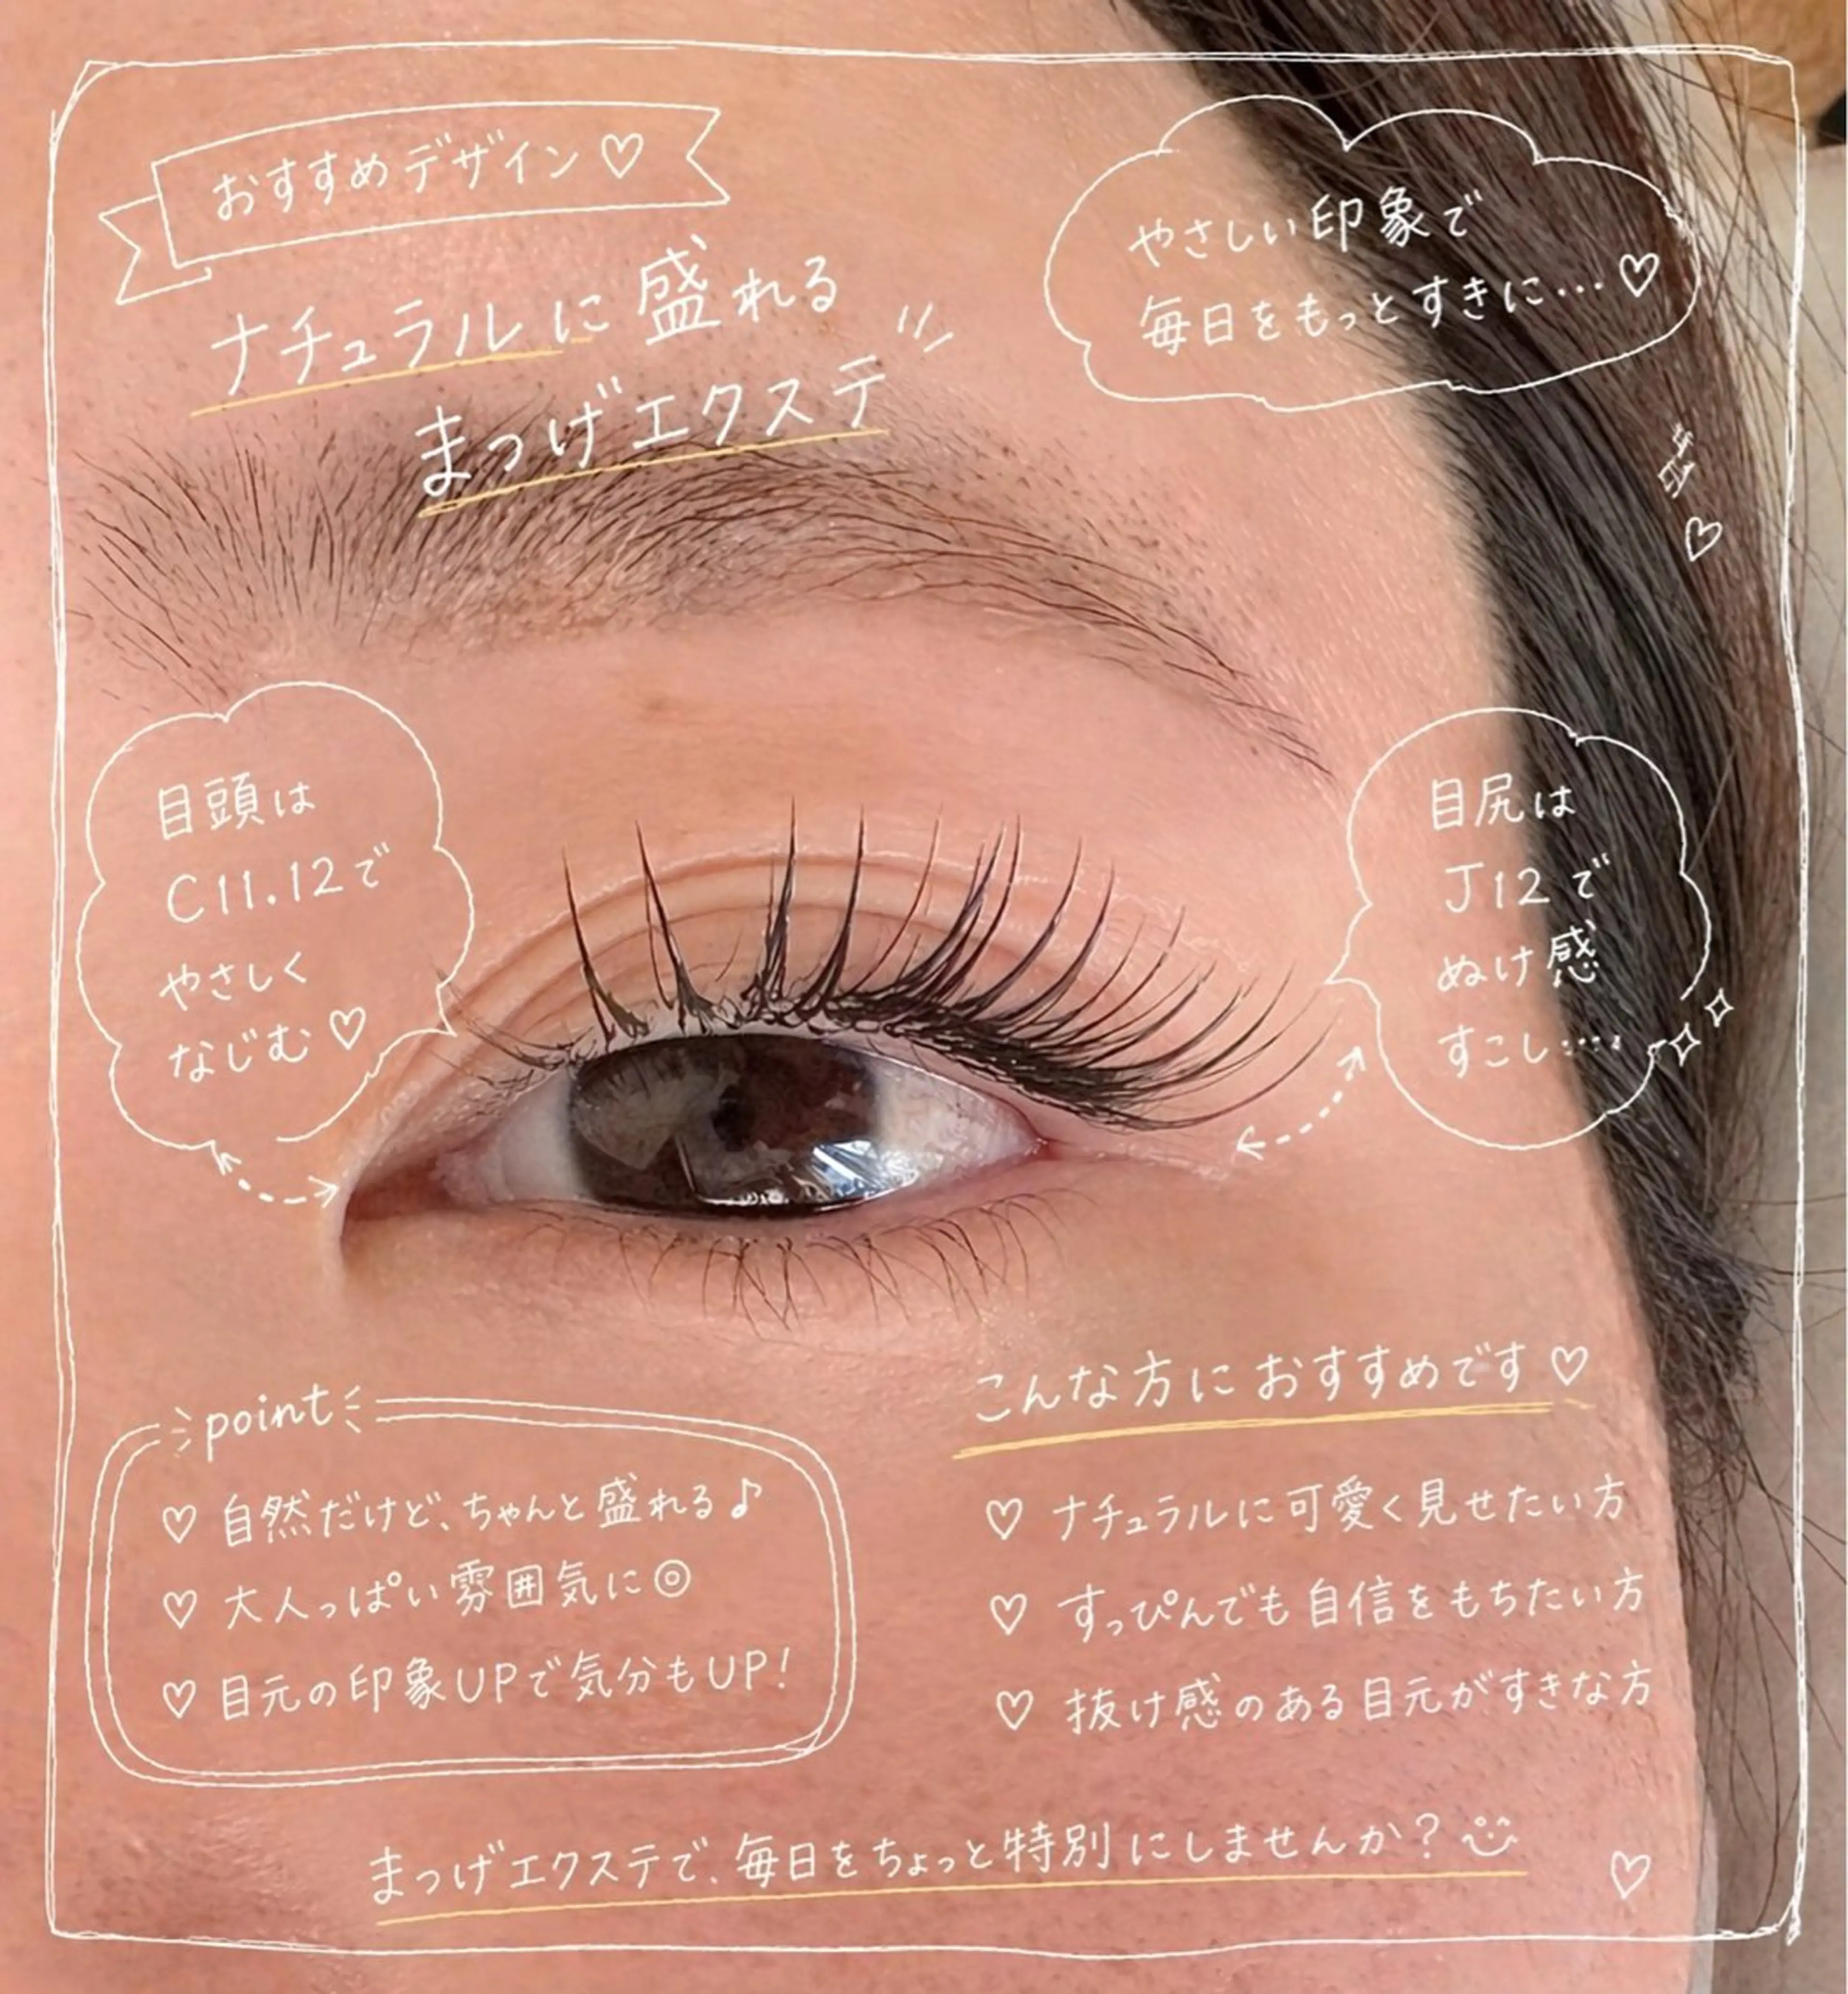 おすすめデザイン♡
ナチュラルに盛れる
まつげエクステ
やさしい印象で
毎日をもっとすきに…♡
目頭は
C11.12で
やさしく
なじむ♡
目尻は
J12で
ぬけ感
すこし…
point
♡ 自然だけど、ちゃんと盛れる♪
♡ 大人っぽい雰囲気に◎
♡ 目元の印象UPで気分もUP!
こんな方におすすめです♡
♡ ナチュラルに可愛く見せたい方
♡ すっぴんでも自信をもちたい方
♡ 抜け感のある目元がすきな方
まつげエクステで、毎日をちょっと特別にしませんか?